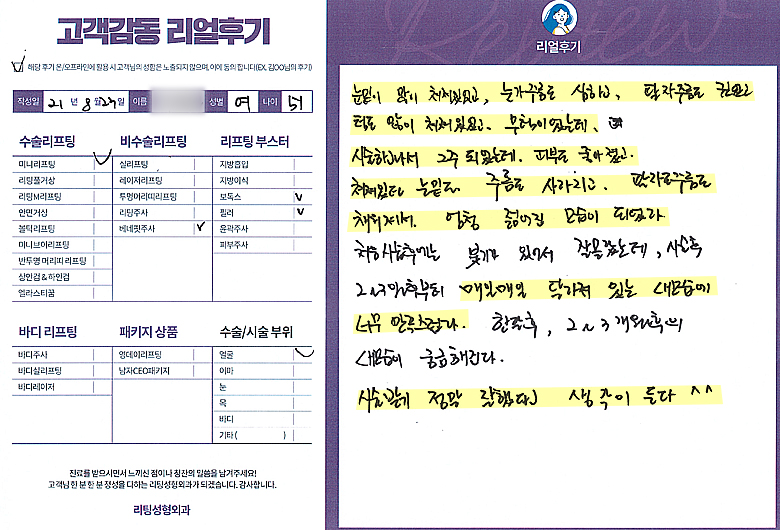 고객감동 리얼후기
해당 후기 온/오프라인에 활용 시 고객님의 성함은 노출되지 않으며, 이에 동의 합니다(EX. 김OO님의 후기)
작성일 21 년 8 월 27 일 이름 성별 여 나이
수술리프팅
미니리프팅
리팅풀거상
리팅M리프팅
안면거상
볼턱리프팅
미니브이리프팅
반투명 머리띠 리프팅
상안검 & 하안검
엘라스티꿈
비수술리프팅
실리프팅
레이저리프팅
투명머리띠리프팅
리팅주사
베네핏주사
리프팅 부스터
지방흡입
지방이식
보톡스
필러
윤곽주사
피부주사
바디 리프팅
바디주사
바디실리프팅
바디레이저
패키지 상품
엉데이리프팅
남자CEO패키지
수술/시술 부위
얼굴
이마
눈
목
바디
기타 ( )
진료를 받으시면서 느끼신 점이나 칭찬의 말씀을 남겨주세요!
고객님 한 분 한 분 정성을 다하는 리팅성형외과가 되겠습니다. 감사합니다.
리팅성형외과
Review
리얼후기
눈밑이 많이 쳐져있었고, 눈가주름도 심하고, 팔자주름도 깊었고
턱도 많이 쳐져있었고. 무턱이었는데,
시술하고나서 2주 되었는데. 피부도 좋아졌고.
쳐져있던 눈밑도 주름도 사라지고. 팔자주름도
채워지며. 엄청 젊어진 모습이 되었다
처음 시술후에는 붓기가 있어서 잘몰랐는데, 시술후
2~3일후부터 매일매일 달라져 있는 내모습이
너무 만족스럽다. 한달후, 2~3개월후의
내모습이 궁금해진다.
시술받기 정말 잘했다는 생각이 든다 ^^